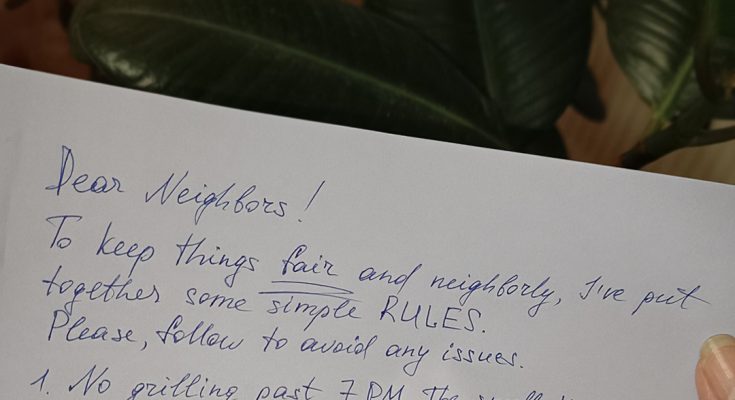 Dear Neighbors!
To keep things fair and neighborly, I've put
together some simple RULES.
Please, follow to avoid any issues.
1. No grilling past 7 PM. The